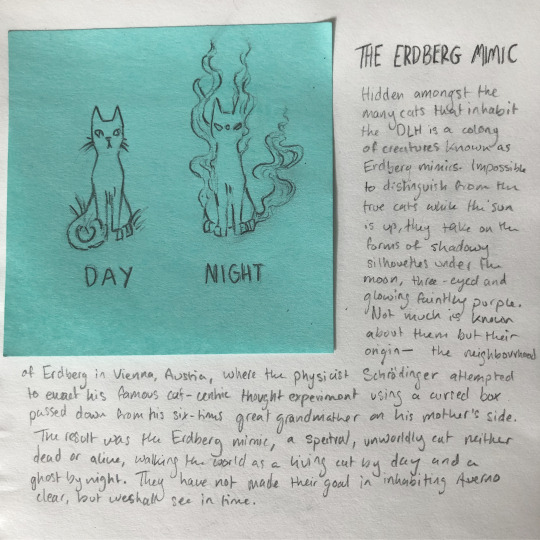 THE ERDBERG MIMIC
Hidden amongst the
many cats that inhabit
the OLH is a colony
of creatures known as
Erdberg mimics. Impossible
to distinguish from the
true cats while the sun
is up, they take on the
forms of shadowy
silhouettes under the
moon, three-eyed and
glowing faintly purple.
Not much is known
about them but their
origin— the neighbourhood
of Erdberg in Vienna, Austria, where the physicist Schrödinger attempted
to enact his famous cat-centric thought experiment using a cursed box
passed down from his six-times great grandmother on his mother's side.
The result was the Erdberg mimic, a spectral, unworldly cat neither
dead or alive, walking the world as a living cat by day and a
ghost by night. They have not made their goal in inhabiting Averno
clear, but we shall see in time.
DAY
NIGHT